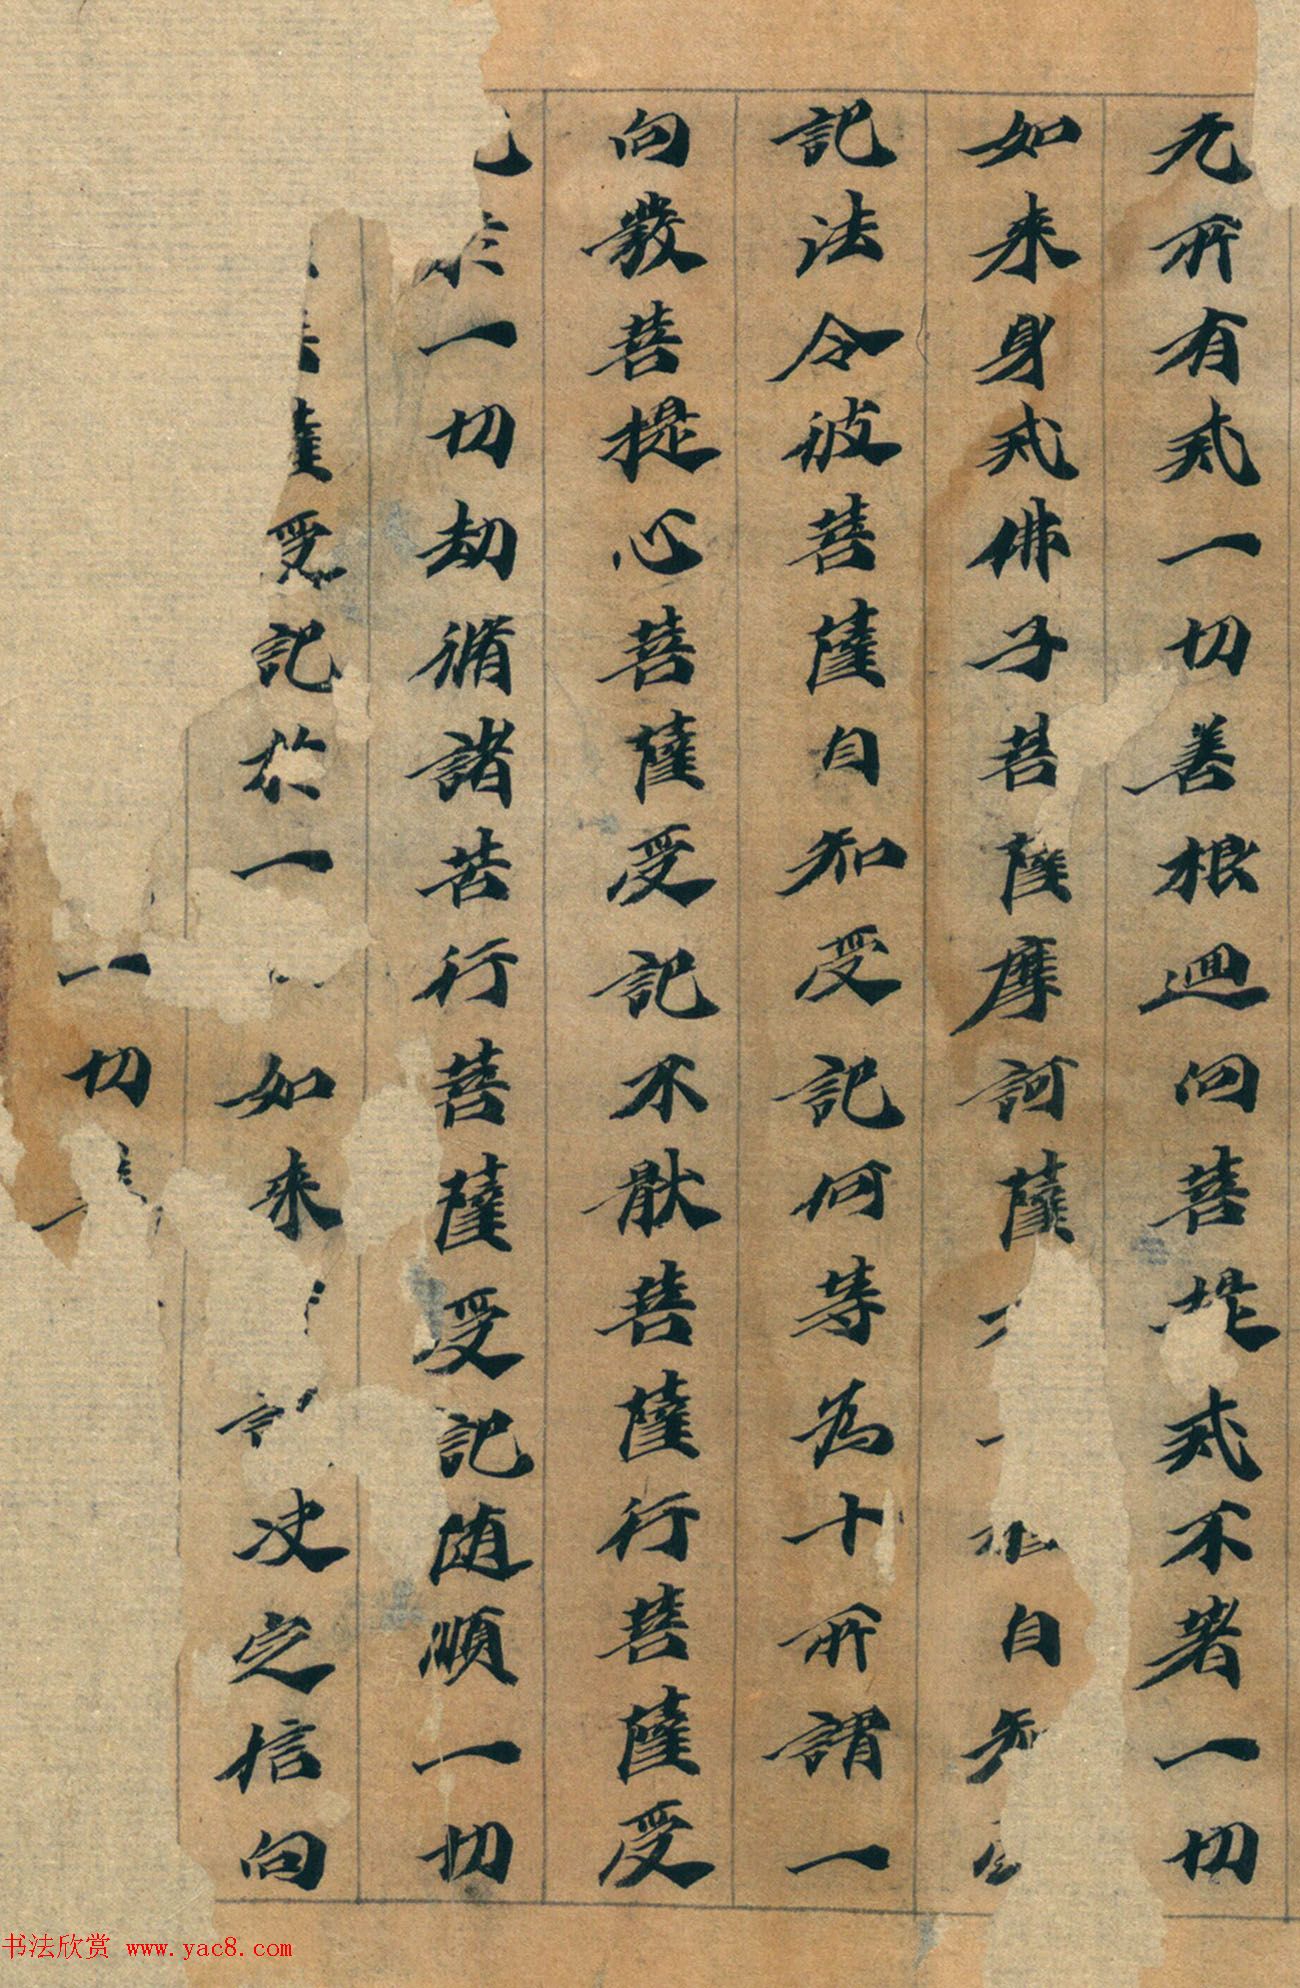 无所有戒一切善根迴向菩提戒不著一切
如来身戒佛子菩薩摩訶薩自知
記法令彼菩薩自知受記何等為十所謂一
向發菩提心菩薩受記不猒菩薩行菩薩受
於一切劫脩諸苦行菩薩受記随順一切
薩受記於一如来决定信向
一切
书法欣赏 www.yac8.com